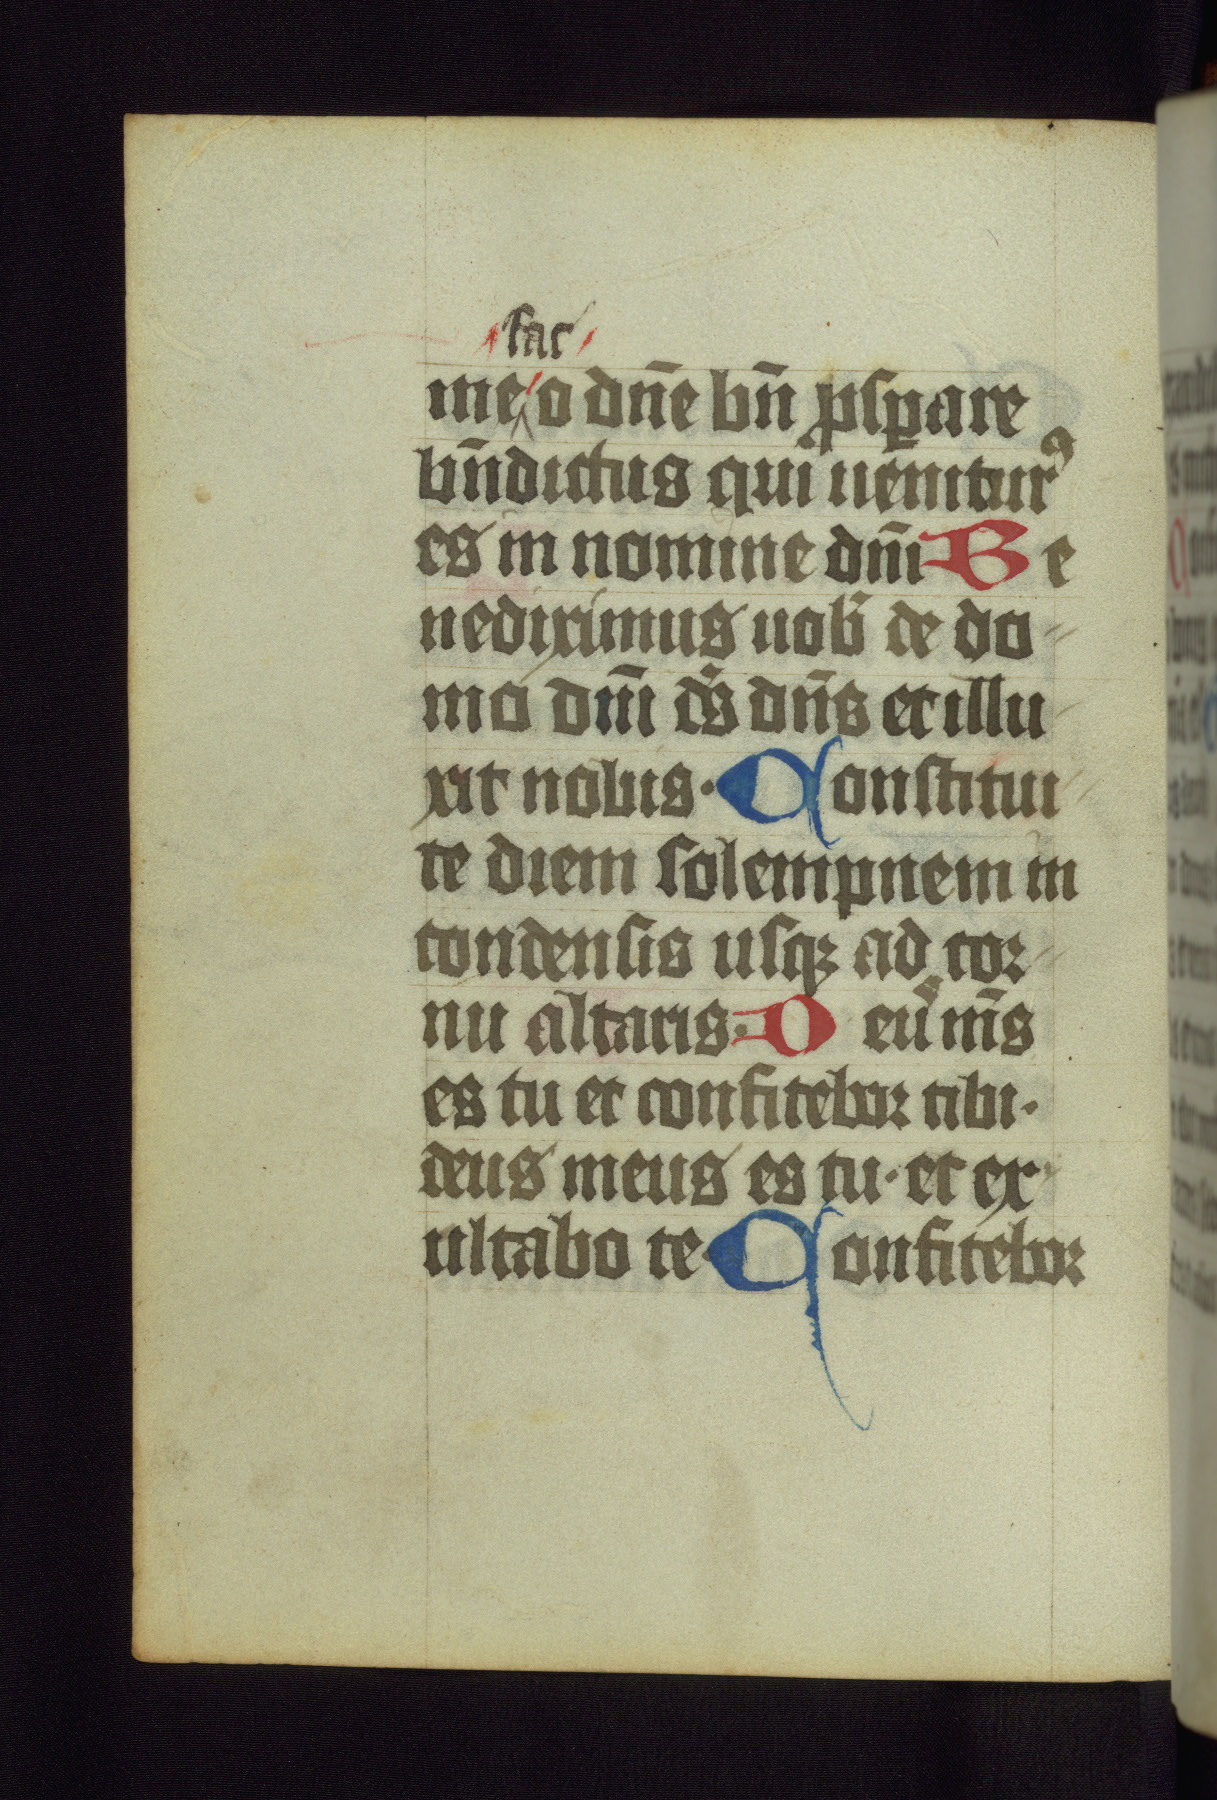 fac
me o dn̄e bn̄ ꝓsꝑare
bn̄dictus qui uenturꝰ
es in nomine dn̄i Be
nediximus uob̄ de do
mo dn̄i ds̄ dn̄s et illu
xit nobis· Constitui
te diem solempnem in
condensis usqꝫ ad cor
nu altaris· Deus m̄s
es tu et confitebor tibi·
deus meus es tu· et ex
ultabo te· Confitebor